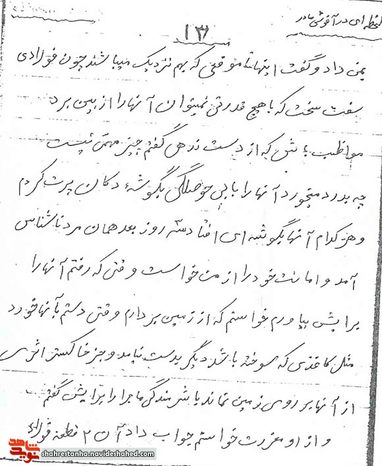 لحظه ای در آغوش مادر
۱۳
بمن داد و گفت اینها تا موقعی که بهم نزدیک میباشند چون فولادی
سفت سخت که با هیچ قدرتی نمیتوان آنها را از بین برد
مواظب باش که از دست ندهی گفتم چیز مهمی نیست
چه بدرد میخورد آنها را با بی حوصلگی بگوشه دکان پرت کردم
و هر کدام آنها بگوشه ای افتاد سه روز بعد همان مرد ناشناس
آمد و امانت خود را از من خواست وقتی که رفتم آنها را
برایش بیاورم خواستم که از زمین بردارم وقتی دستم بآنها خورد
مثل کاغذی که سوخته باشد دیگر بدست نیامد و جز خاکستر اثری
از آنها بر روی زمین نماند با شرمندگی ماجرا را برایش گفتم
و از او معذرت خواستم جواب داد آن ۲ قطعه فولاد
shohretanha.navideshahed.com